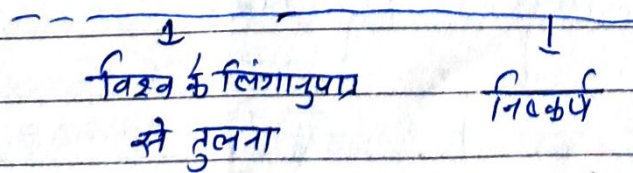 विश्व के लिंगानुपात
से तुलना
निष्कर्ष